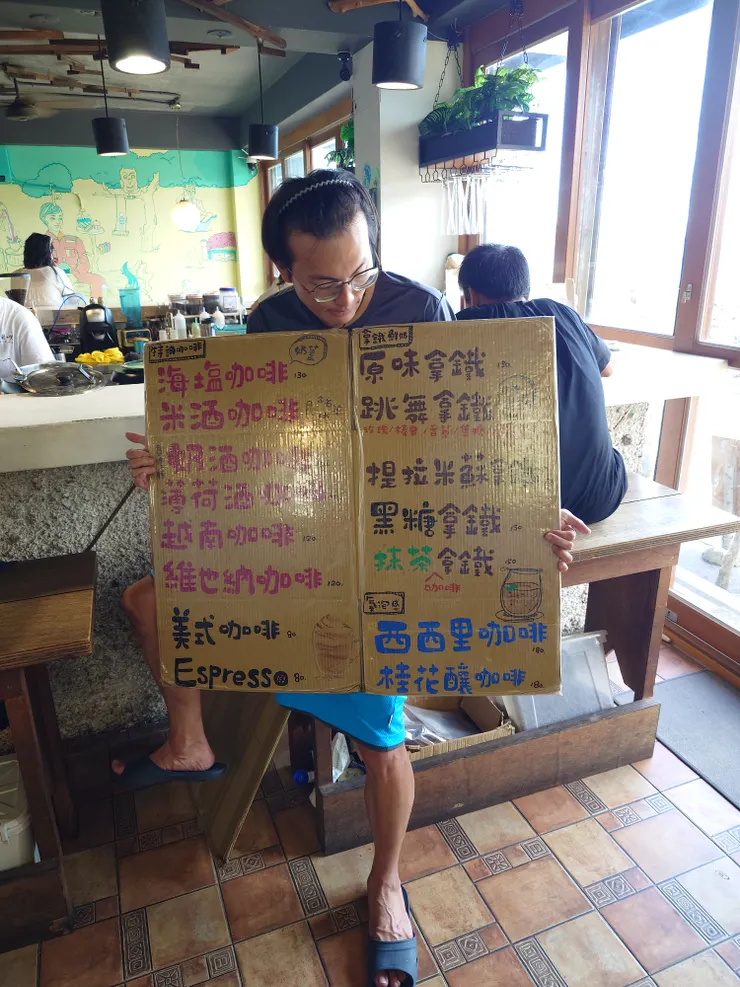 特調咖啡
海塩咖啡 130
米酒咖啡
奶酒咖啡
薄荷酒咖啡
越南咖啡 120
維也納咖啡 120.
美式咖啡 80
Espresso 80.
拿鐵
原味拿鐵 130
跳舞拿鐵
玫瑰/榛果/
提拉米蘇拿鐵
黑糖拿鐵 150
抹茶拿鐵 150
咖啡
氣泡
西西里咖啡 180
桂花釀咖啡 180.